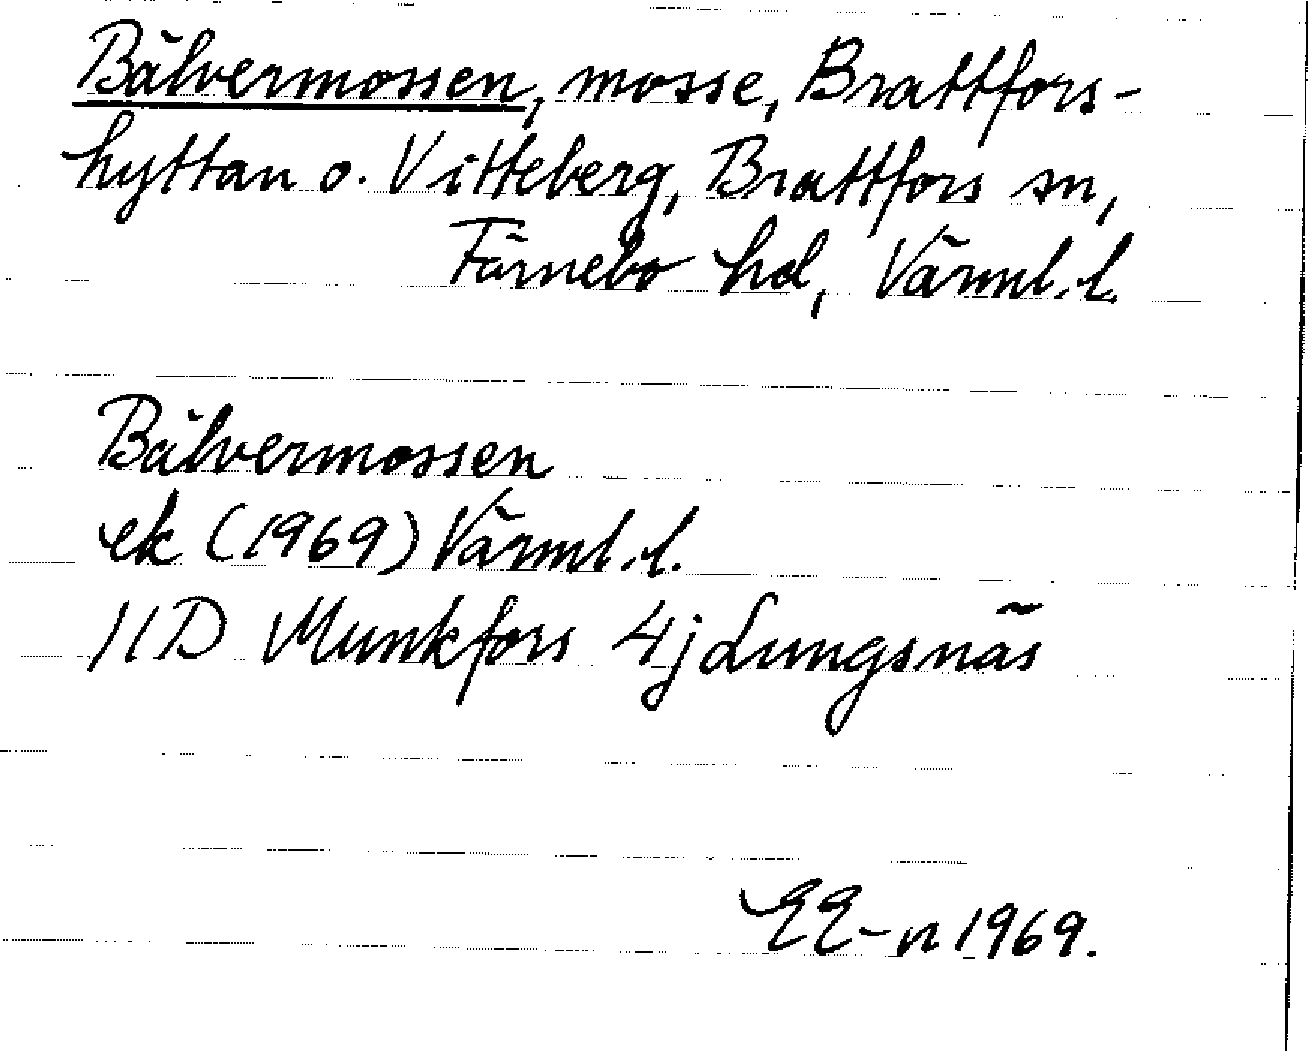 Bälvermossen, mosse, Brattfors-
hyttan o. Vitteberg, Brattfors sn,
Färnebo hd, Värml.l.
Bälvermossen
ek (1969) Värml.l.
11D Munkfors 4j Lungsnäs
EE-n 1969.